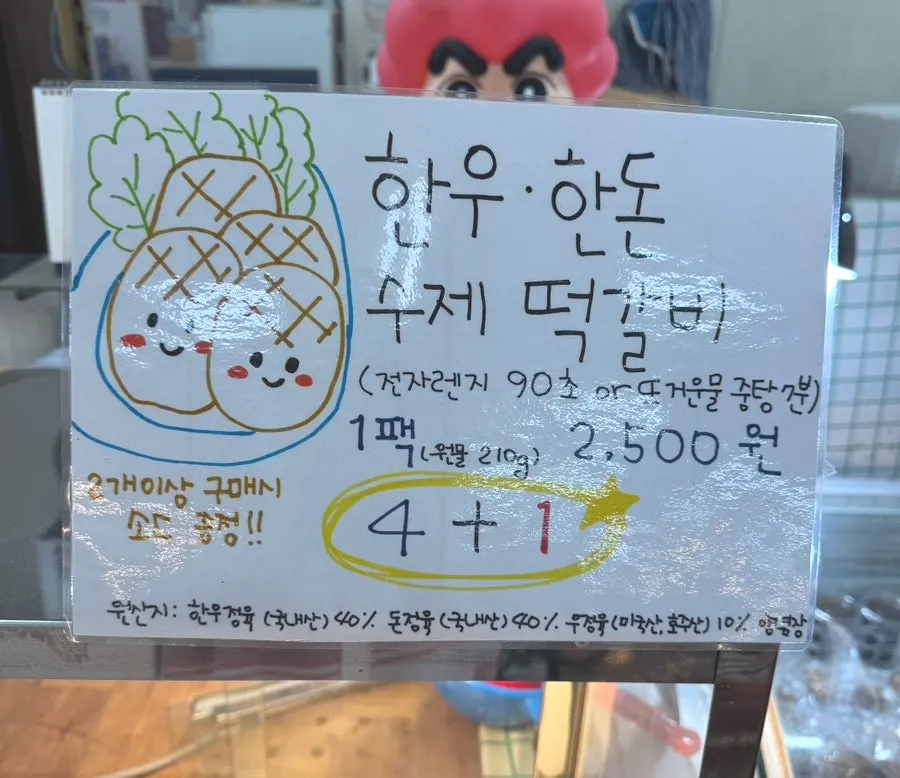 한우·한돈
수제 떡갈비
(전자렌지 90초 or 뜨거운물 중탕 7분)
1팩(원물 210g) 2,500원
4+1
2개이상 구매시
소스 증정!!
원산지: 한우정육 (국내산) 40% 돈정육 (국내산) 40% 우정육 (미국산, 호주산) 10%